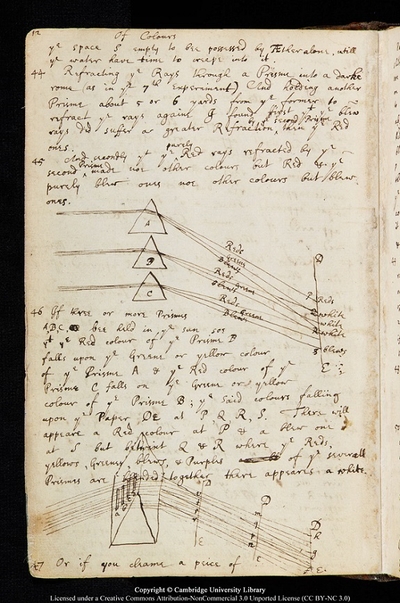 12 Of Colours
yͤ space S empty to bee possessed by Æther alone, untill
yͤ water have time to creepe into it.
44 Refracting yͤ Rays through a Prisme into a darke
rome (as in yͤ 7th experiment) And holding another
Prisme about 5 or 6 yards from yͤ former to
refract yͤ rays againe I found first yt yͤ blew
rays did suffer a greater Refraction by yͤ second Prisme then yͤ Red
ones.
45 And secondly yt yͤ purely Red rays refracted by yͤ
second Prisme made noe other colours but Red & yͤ
purely blew ones noe other colours but blew
ones.
A
B
C
Reds
Greens
Blews
Reds
Greens
Blews
Reds
Greens
Blews
D
P Reds
Q white
white
R white
S blews
E
46 If three or more Prismes
A, B, C, bee held in yͤ sun soe
yt yͤ Red colour of yͤ Prisme B
falls upon yͤ Greene or yellow colour
of yͤ Prisme A & yͤ Red colour of yͤ
Prisme C falls on yͤ Greene or yellow
colour of yͤ Prisme B; yͤ said colours falling
upon yͤ Paper DE at P Q R S. There will
appeare a Red colour at P & a blew one
at S but betwixt Q & R where yͤ Reds,
yellows, Greens, blews, & Purples of yͤ severall
Prismes are blended together there appeares a white.
D
D
D
E
E
E
47 Or if you cleane a peice of
Copyright © Cambridge University Library
Licensed under a Creative Commons Attribution-NonCommercial 3.0 Unported License (CC BY-NC 3.0)